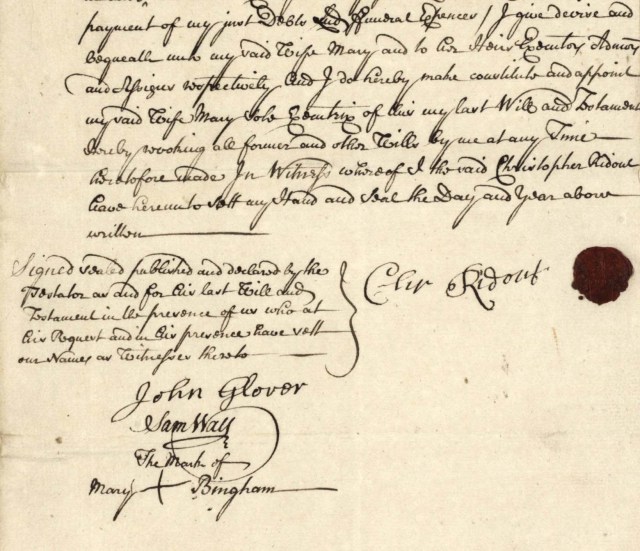 payment of my just Debts and Funeral Expences / I give devise and
bequeath unto my said Wife Mary and to her Heirs Executors Admors
and Assigns respectively And I do hereby make constitute and appoint
my said Wife Mary Sole Executrix of this my last Will and Testament
hereby revoking all former and other Wills by me at any Time
heretofore made In Witness whereof I the said Christopher Ridout
have hereunto sett my Hand and Seal the Day and Year above
written
Signed sealed published and declared by the
Testator as and for his last Will and
Testament in the presence of us who at
his Request and in his presence have sett
our Names as Witnesses thereto
Chr Ridout
John Glover
Sam Wall
The Mark of
Mary + Bingham